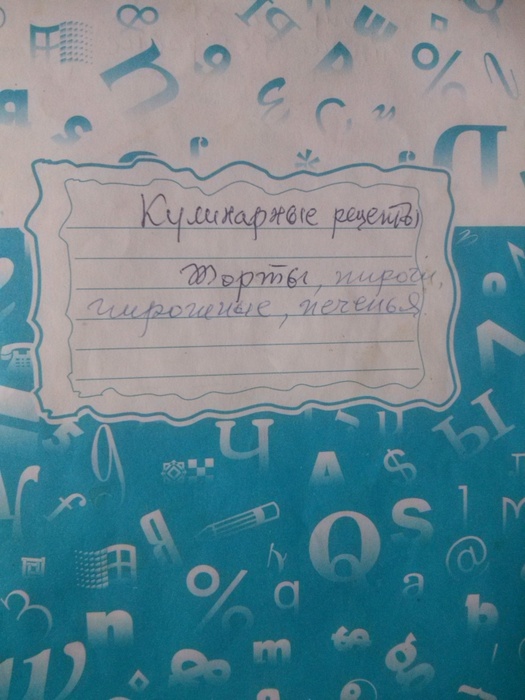 Кулинарные рецепты
Торты, пироги,
пирожные, печенья